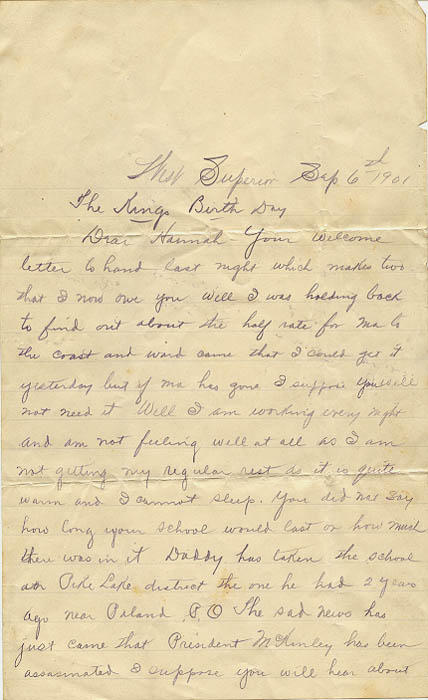 West Superior Sep 6th 1901
The Kings Birth Day
Dear Hannah - Your welcome
letter to hand last night which makes two
that I now owe you Well I was holding back
to find out about the half rate for ma to
the coast and word came that I could get it
yesterday but if ma has gone I suppose you will
not need it Well I am working every night
and am not feeling well at all as I am
not getting my regular rest as it is quite
warm and I cannot sleep. You did not say
how long your school would last or how much
there was in it Daddy has taken the school
at Pike Lake district the one he had 2 years
ago near P.O The sad news has
just came that President McKinley has been
assasinated I suppose you will hear about